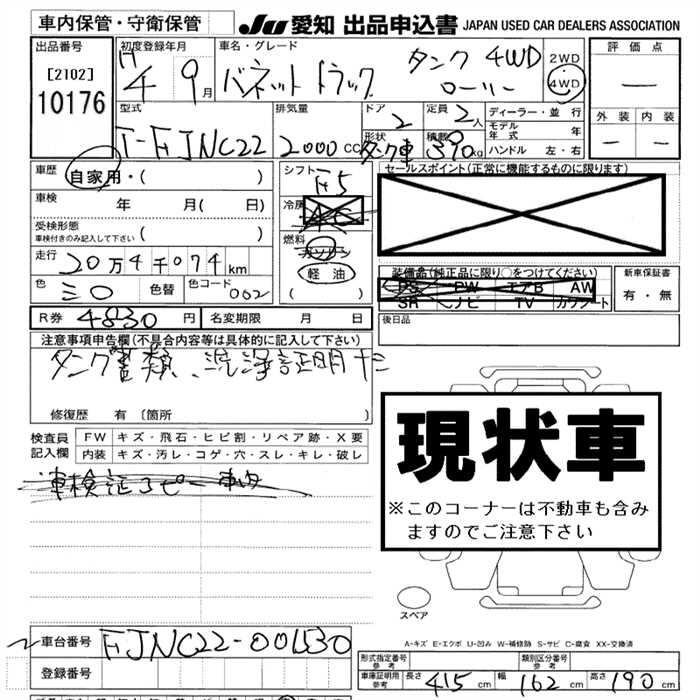 車内保管・守衛保管 JU 愛知 出品申込書 JAPAN USED CAR DEALERS ASSOCIATION
出品番号 初度登録年月 車名・グレード 評価点
[2102] H 4 9月 バネットトラック タンクローリー 4WD 2WD 4WD
10176 —
外装 内装
型式 排気量 ドア 定員 ディーラー・並行
T-FJNC22 2000cc 2 2人 モデル年式 年
形状 タンク車 積載 390kg ハンドル 左・右 — —
車歴 自家用・( ) シフト F5 セールスポイント(正常に機能するものに限ります)
車検 年 月( 日) 冷房 AC
受検形態
車検付きのみ記入して下さい 燃料 ガソリン
走行 20万4千074km 軽油 装備品(純正品に限り○をつけてください) 新車保証書
PS PW エアB AW 有・無
色 シロ 色替 色コード 002 ( ) SR ナビ TV カワシート
R券 4830円 名変期限 月 日 後日品
注意事項申告欄(不具合内容等は具体的に記入して下さい)
タンク書類、洗浄証明ナシ
修復歴 有 [箇所
検査員記入欄 FW キズ・飛石・ヒビ割・リペア跡・X要
内装 キズ・汚レ・コゲ・穴・スレ・キレ・破レ
車検証コピー
現状車
※このコーナーは不動車も含み
ますのでご注意下さい
スペア
A-キズ E-エクボ U-凹み W-補修跡 S-サビ C-腐食 XX-交換済
車台番号 FJNC22-001530
形式指定番号 参考 類別区分番号 参考
登録番号 車庫証明用 参考 長さ 415cm 幅 162cm 高さ 190cm